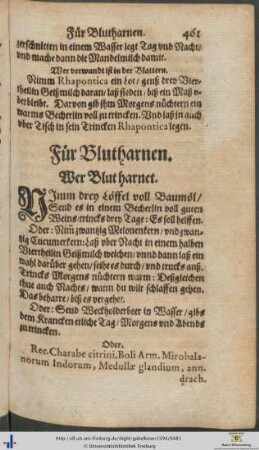 Für Blutharnen. 461
zerschnitten in einem Wasser legt Tag vnd Nacht/
vnd mache dann die Mandelmilch damit.
Wer verwundt ist in der Blattern.
Nimm Rhapontica ein Lot/ geuß drey Vier-
theilin Geißmilch daran/ laß sieden/ biß ein Maß v-
berbleibe. Darvon gib jhm Morgens nüchtern ein
warms Becherlin voll zu trincken. Vnd laß in auch
vber Tisch in sein Trincken Rhapontica legen.
Für Blutharnen.
Wer Blut harnet.
NImm drey Löffel voll Baumöl/
Send es in einem Becherlin voll guten
Weins/trincks drey Tage: Es soll helffen.
Oder: Nim̃ zwantzig Melonenkern/ vnd zwan-
tzig Cucumerkern: Laß vber Nacht in einem halben
Viertheilin Geißmilch weichen/ vnnd dann laß ein
wahl darüber gehen/ seihe es durch/ vnd trucks auß.
Trincks Morgens nüchtern warm: Deßgleichen
thue auch Nachts/ wann du wilt schlaffen gehen.
Das beharre/ biß es vergehet.
Oder: Send Weckholderbeer in Wasser/ gibs
dem Krancken etliche Tag/ Morgens vnd Abends
zu trincken.
Oder,
Rec. Charabe citrini, Boli Arm. Mirobala-
norum Indorum, Medullæ glandium, ann.
drach.
© Universitätsbibliothek Freiburg